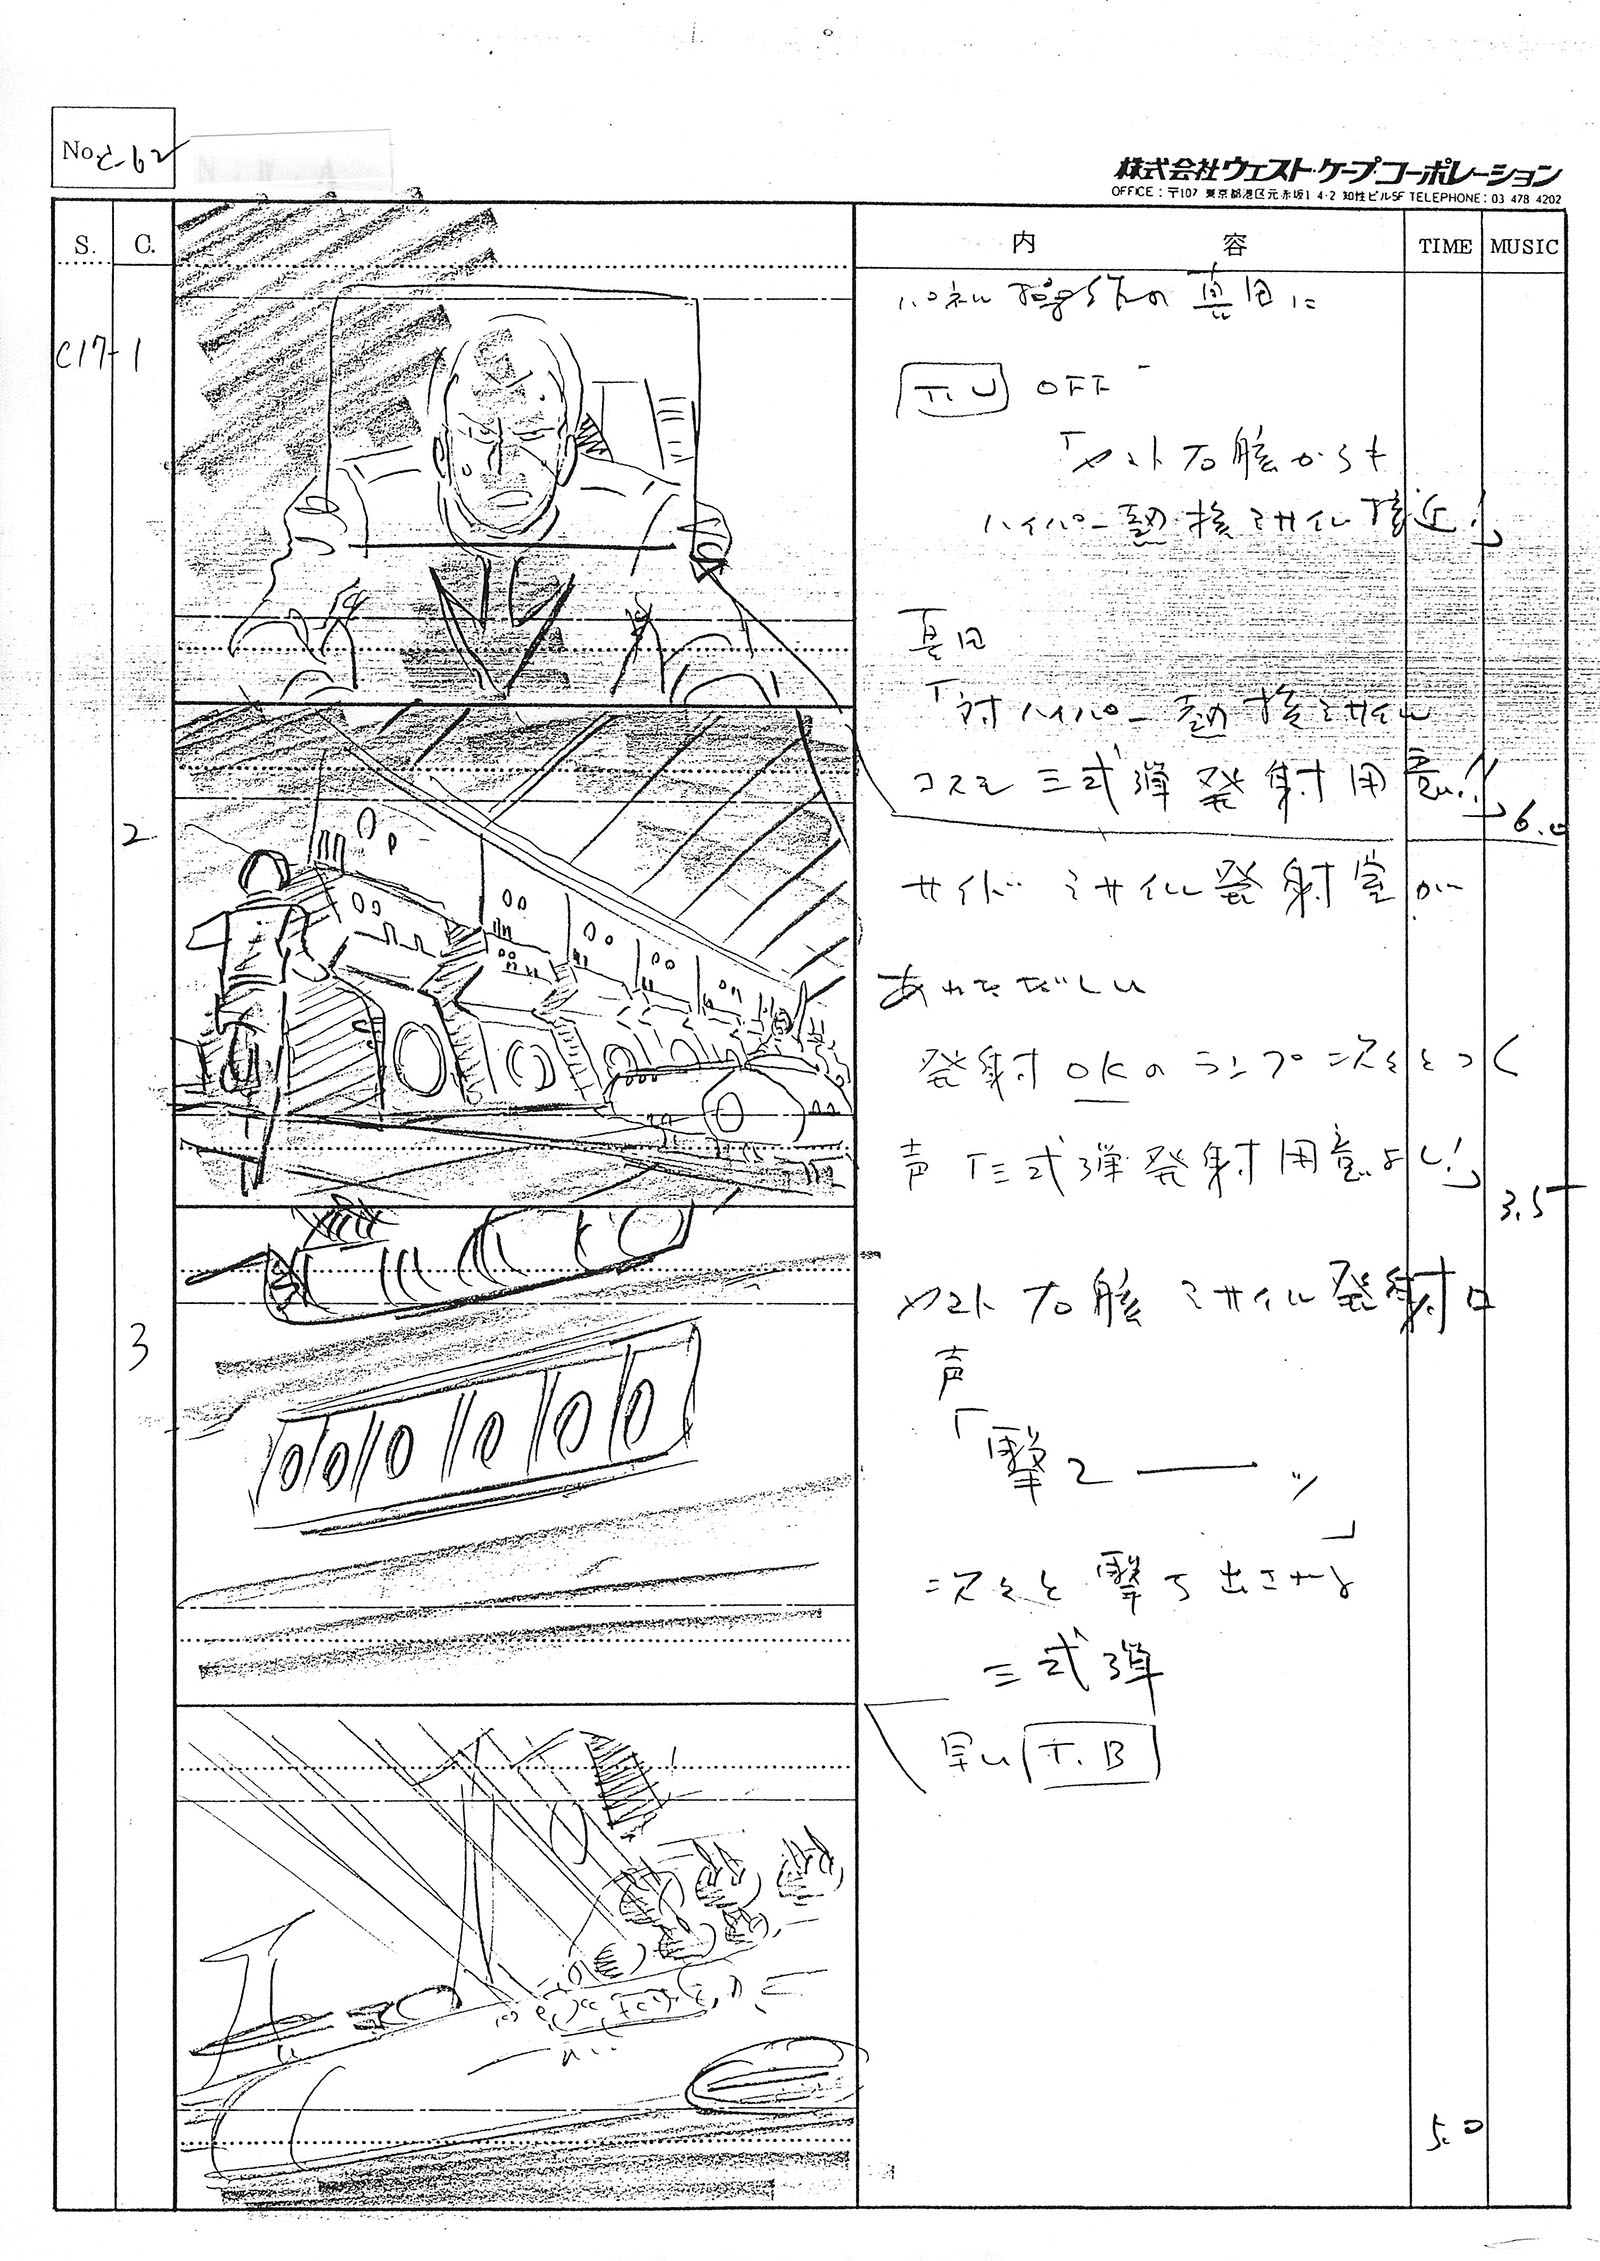 No. C-62
株式会社ウェスト・ケープ・コーポレーション
OFFICE：〒107 東京都港区元赤坂1-4-2 知性ビル5F TELEPHONE：03 478 4202
S. C. 内 容 TIME MUSIC
C17-1
パネル操作の真田に
T.U OFF
「ヤマト右舷からも
ハイパー熱核ミサイル接近!」
真田
「対ハイパー熱核ミサイル
コスモ三式弾発射用意!!」
6.0
2
サイドミサイル発射室が
あわただしい
発射OKのランプ次々とつく
声「三式弾発射用意よし!」
3.5
3
ヤマト右舷ミサイル発射口
声
「撃てーーッ」
次々と撃ち出される
三式弾
早い T.B
5.0